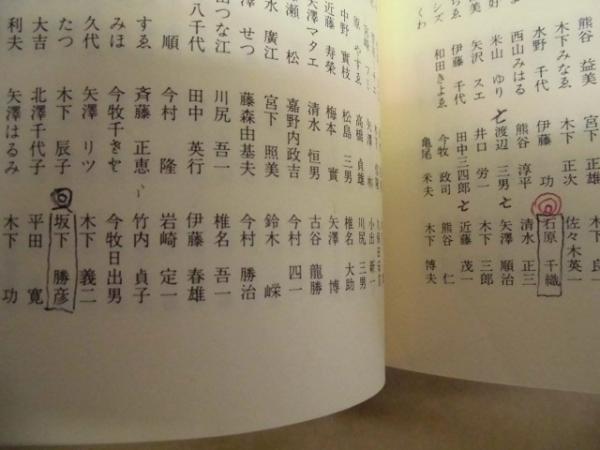 木下 良一
佐々木 英一
石原 千織
清水 正三
矢澤 順治
木下 三郎
近藤 茂一
熊谷 仁
木下 博夫
木下 正雄
木下 正次
伊藤 功
熊谷 淳平
渡辺 三男
井口 労一
田中 三四郎
今牧 政司
亀尾 米夫
熊谷 益美
木下 みなゑ
水野 千代
西山 みはる
米山 ゆり
矢沢 スエ
伊藤 千代
和田 きよゑ
好美
ちゑ
シズ
くわ
小出 新一
川尻 三男
椎名 大助
矢澤 博
古谷 龍勝
今村 四一
鈴木 嶸
今村 勝治
椎名 吾一
伊藤 春雄
岩崎 定一
竹内 貞子
今牧 日出男
木下 義二
坂下 勝彦
平田 寛
木下 功
高橋 貞雄
松島 三男
梅本 實
清水 恒男
嘉野内 政吉
宮下 照美
藤森 由基夫
川尻 吾一
田中 英行
今村 隆
斉藤 正恵
今牧 千きや
矢澤 リツ
木下 辰子
北澤 千代子
矢澤 はるみ
原 やすゑ
中野 實枝
近藤 寿榮
矢澤 マタエ
瀬 松
水 廣江
澤 せつ
つな江
八千代
順
すゑ
みほ
久代
たつ
大吉
利夫